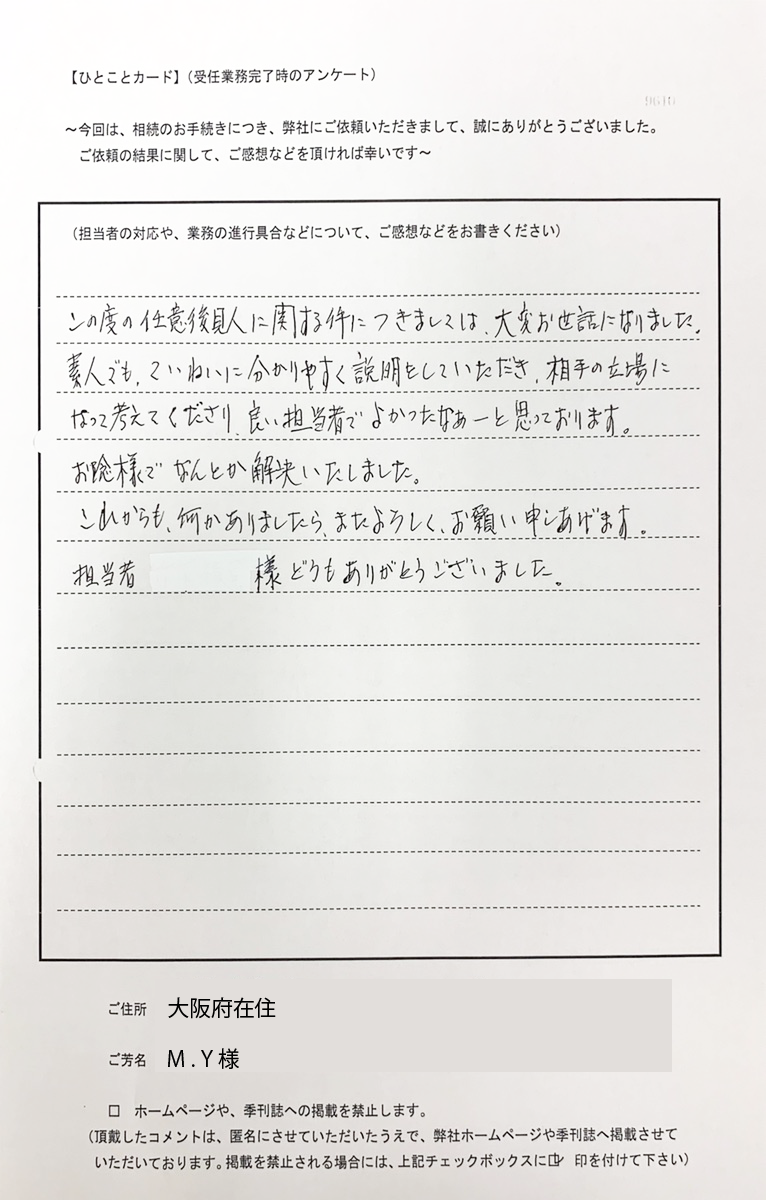 【ひとことカード】（受任業務完了時のアンケート）
～今回は、相続のお手続きにつき、弊社にご依頼いただきまして、誠にありがとうございました。
ご依頼の結果に関して、ご感想などを頂ければ幸いです～
（担当者の対応や、業務の進行具合などについて、ご感想などをお書きください）
この度の任意後見人に関する件につきましては、大変お世話になりました。
素人でも、ていねいに分かりやすく説明をしていただき、相手の立場に
なって考えてくださり、良い担当者でよかったなぁーと思っております。
お陰様でなんとか解決いたしました。
これからも、何かありましたら、またよろしく、お願い申しあげます。
担当者 様どうもありがとうございました。
ご住所 大阪府在住
ご芳名 M.Y様
□ ホームページや、季刊誌への掲載を禁止します。
（頂戴したコメントは、匿名にさせていただいたうえで、弊社ホームページや季刊誌へ掲載させて
いただいております。掲載を禁止される場合には、上記チェックボックスに☑ 印を付けて下さい）